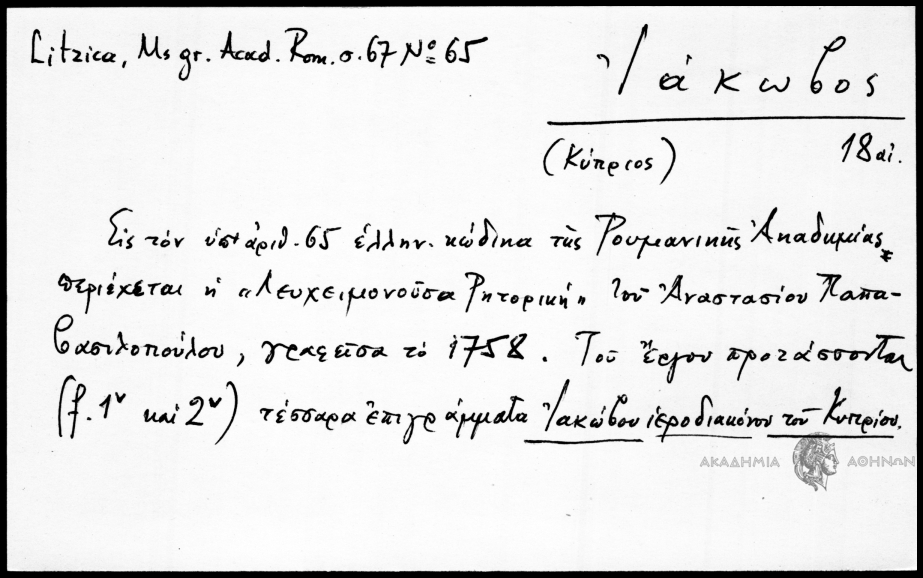 Litzica, Ms gr. Acad. Rom. σ. 67 Nº 65
Ἰάκωβος
(Κύπριος) 18 αἰ.
Εἰς τὸν ὑπ' ἀριθ. 65 ἑλλην. κώδικα τῆς Ρουμανικῆς Ἀκαδημίας
περιέχεται ἡ «Λευχειμονοῦσα Ρητορική» τοῦ Ἀναστασίου Παπα-
βασιλοπούλου, γραφεῖσα τὸ 1758. Τοῦ ἔργου προτάσσονται
(f. 1ᵛ καὶ 2ᵛ) τέσσαρα ἐπιγράμματα Ἰακώβου ἱεροδιακόνου τοῦ Κυπρίου.
ΑΚΑΔΗΜΙΑ ΑΘΗΝΩΝ